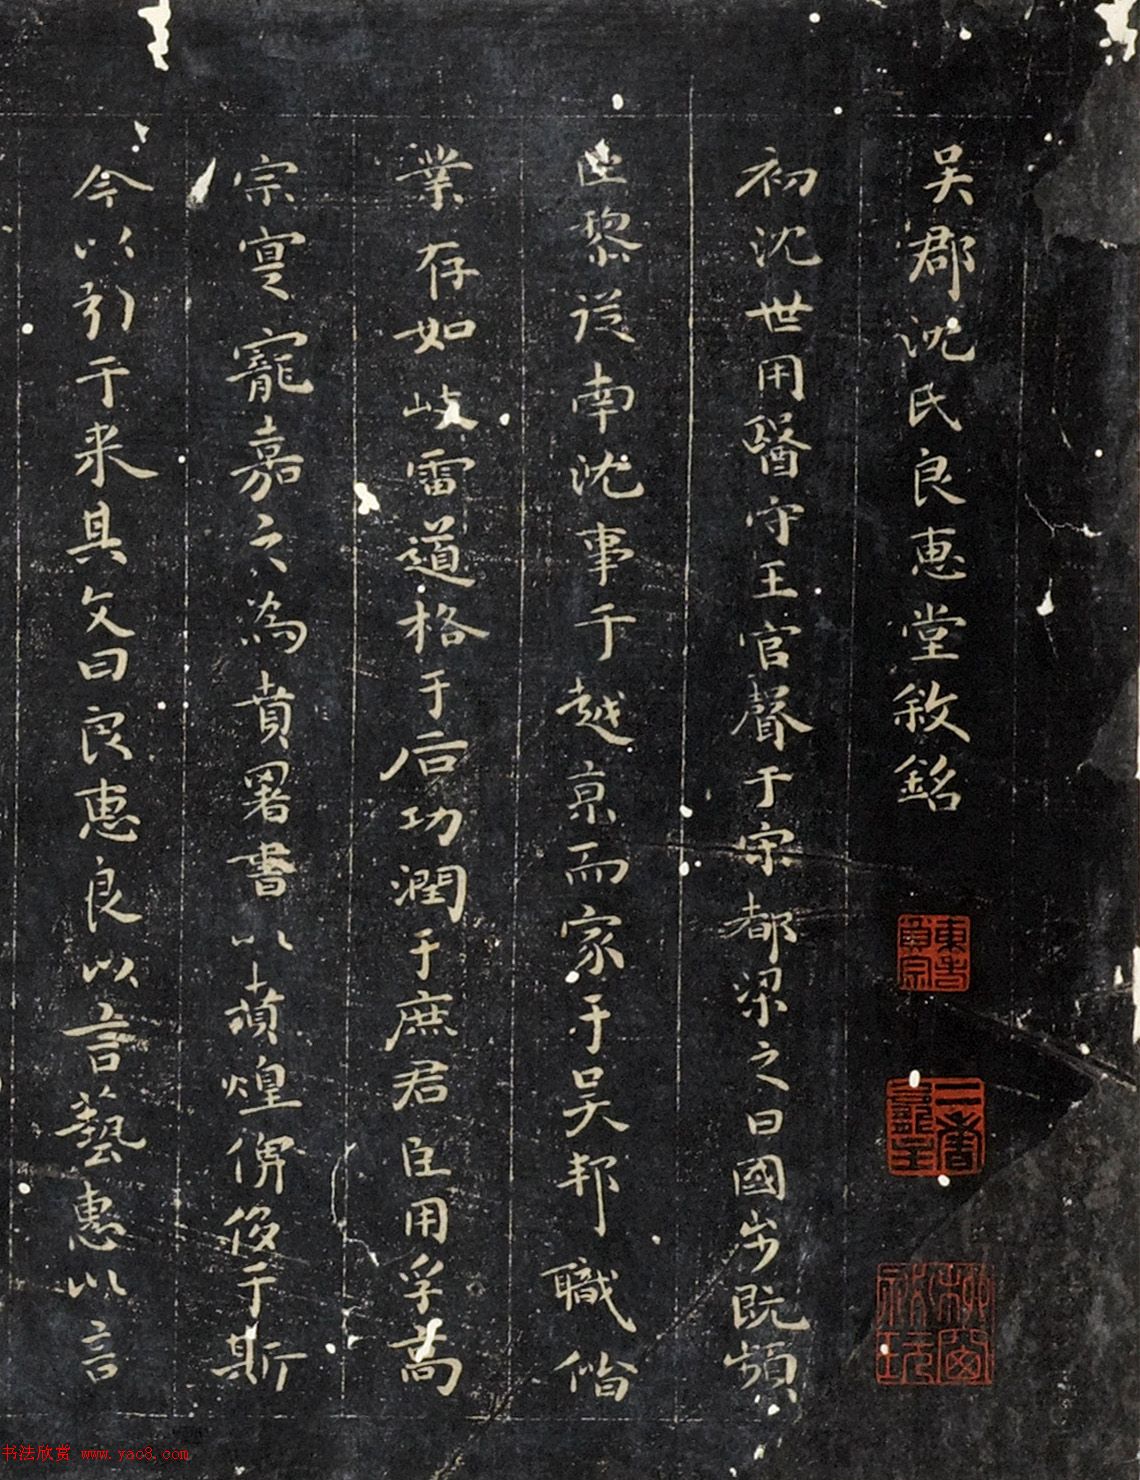 吳郡沈氏良惠堂敘銘
初沈世用醫守王官聲于宋都梁之日國步既頻
黎從南沈事于越京而家于吳邦職
業存如岐雷道格于后功潤于庶君臣用孚蒿
宗寔寵嘉之為賁署書以賁煌俾侈于斯
今以引于來具文曰良惠良以言藝惠以言
書法欣賞 www.yac8.com